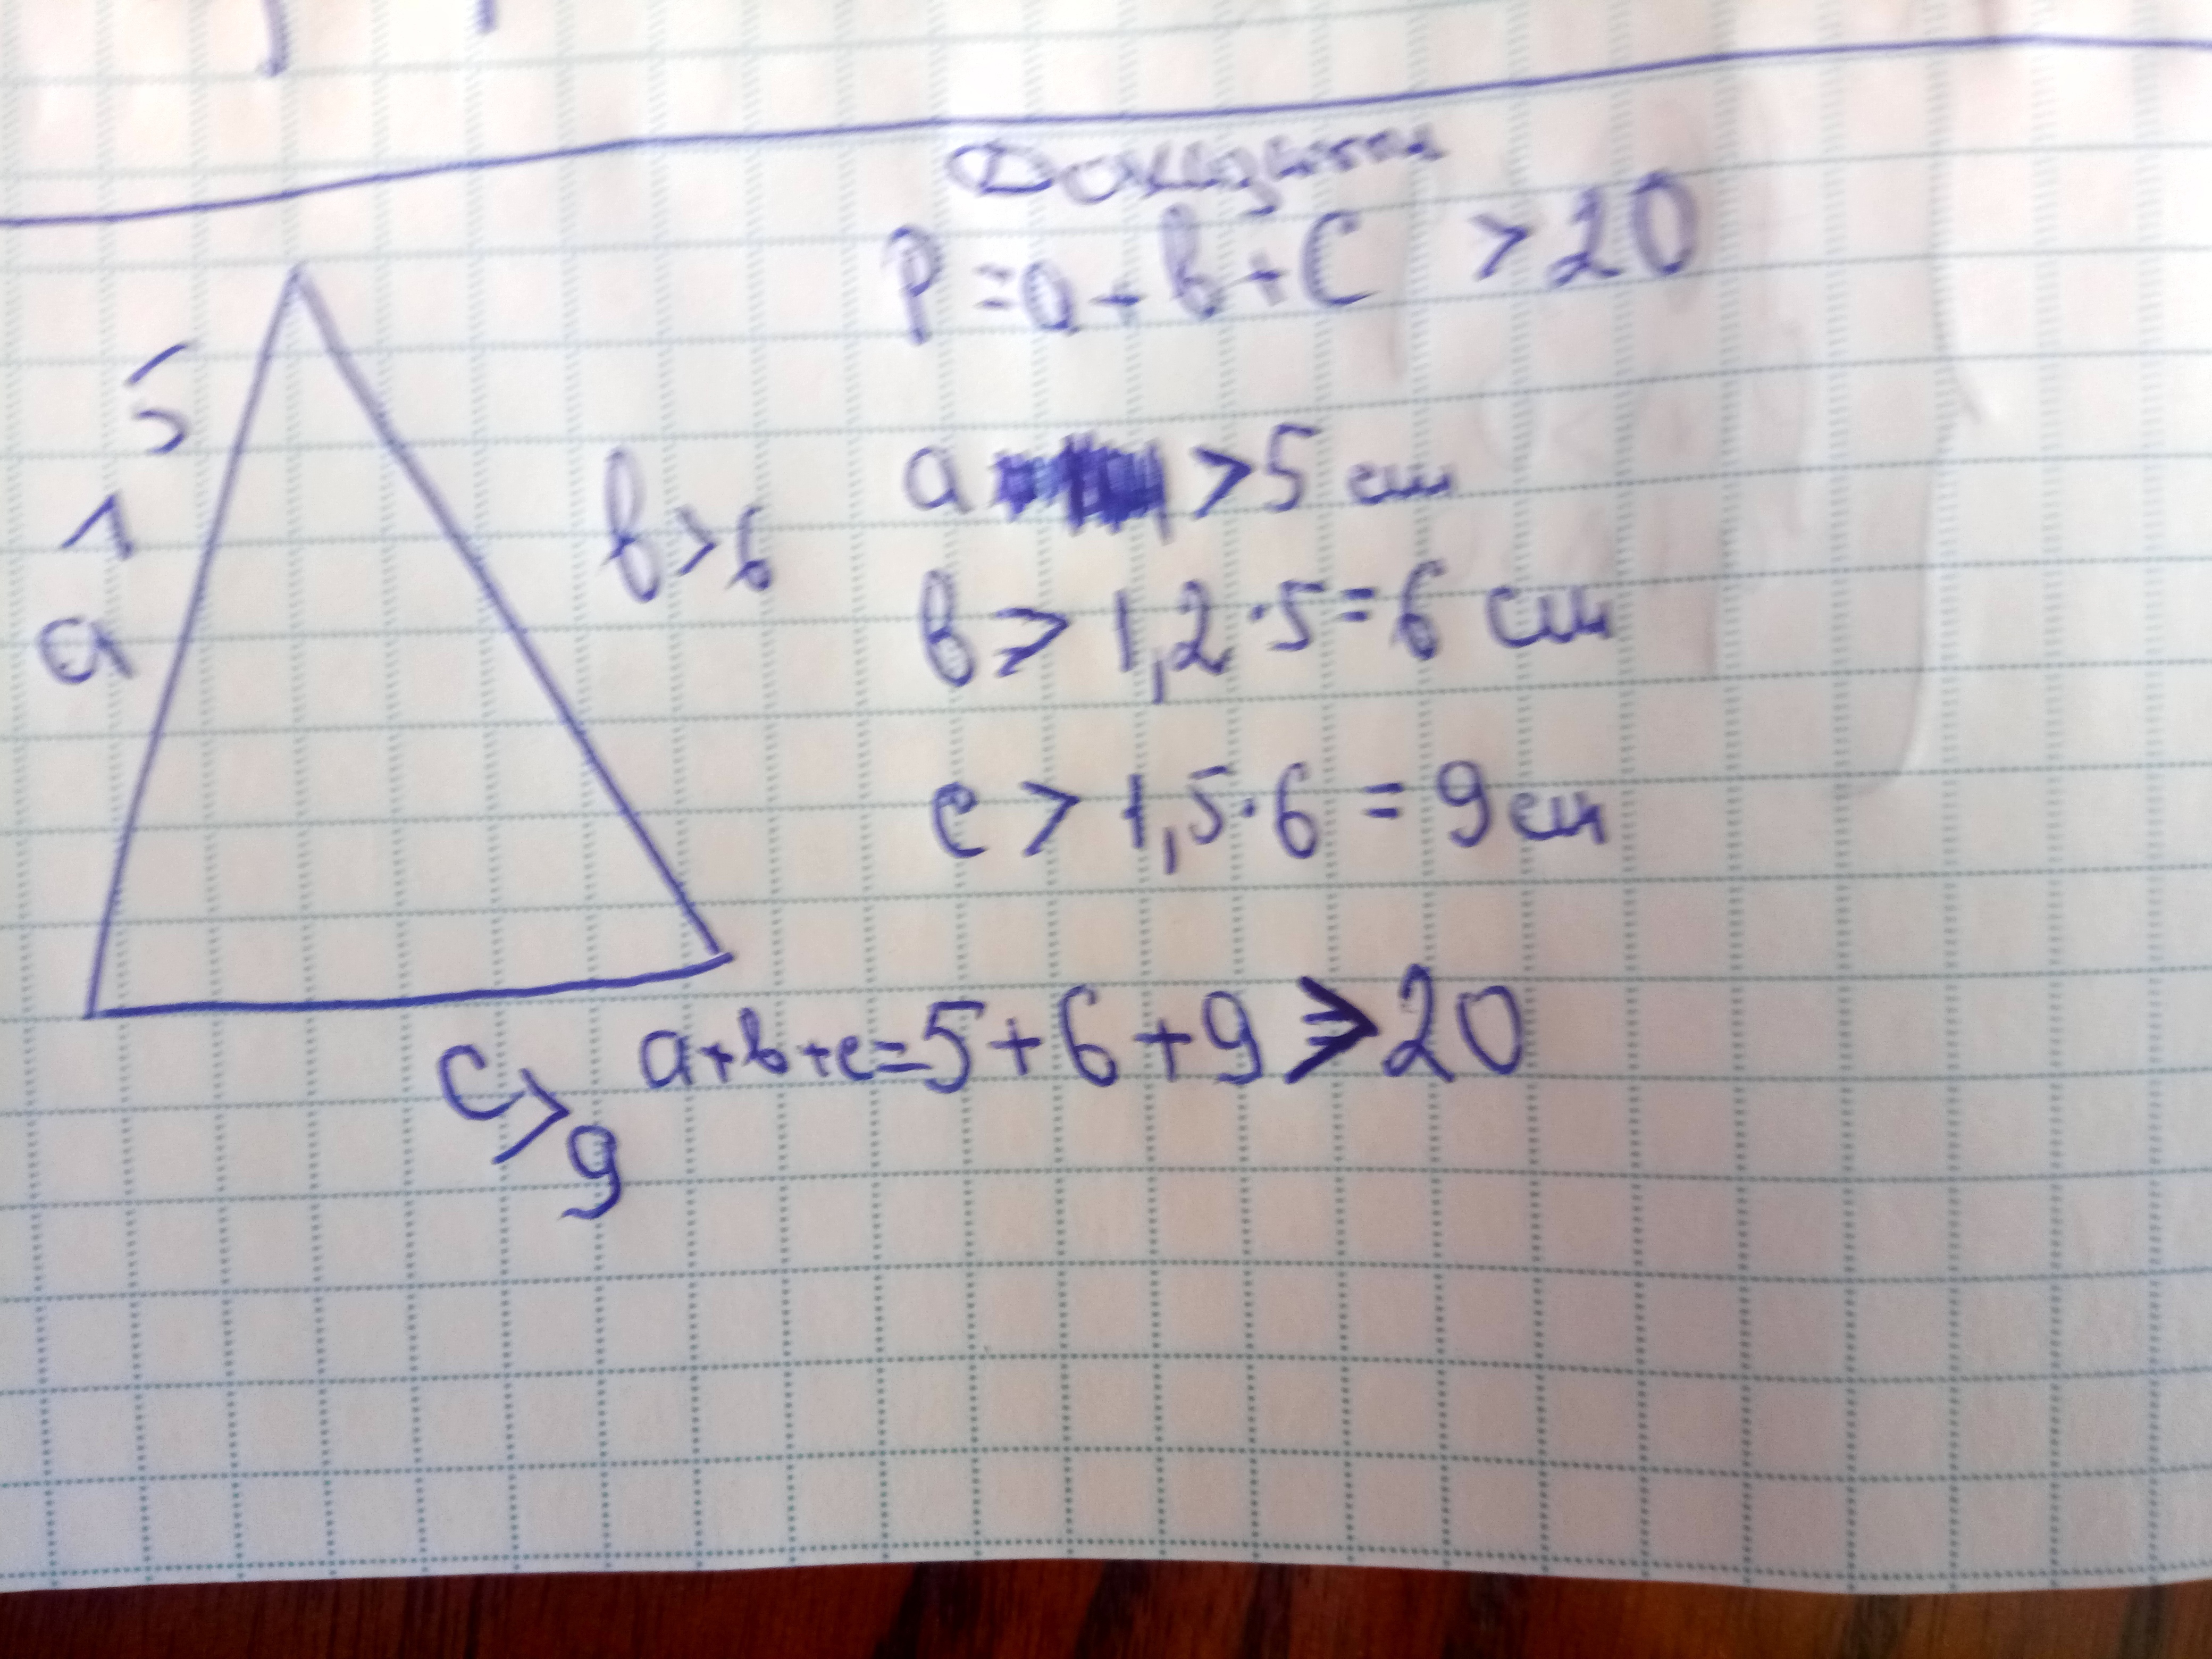 P = a + b + C > 20
5
^
a
b > 6
a > 5 см
b > 1,2 · 5 = 6 см
c > 1,5 · 6 = 9 см
a + b + c = 5 + 6 + 9 > 20
C > 9